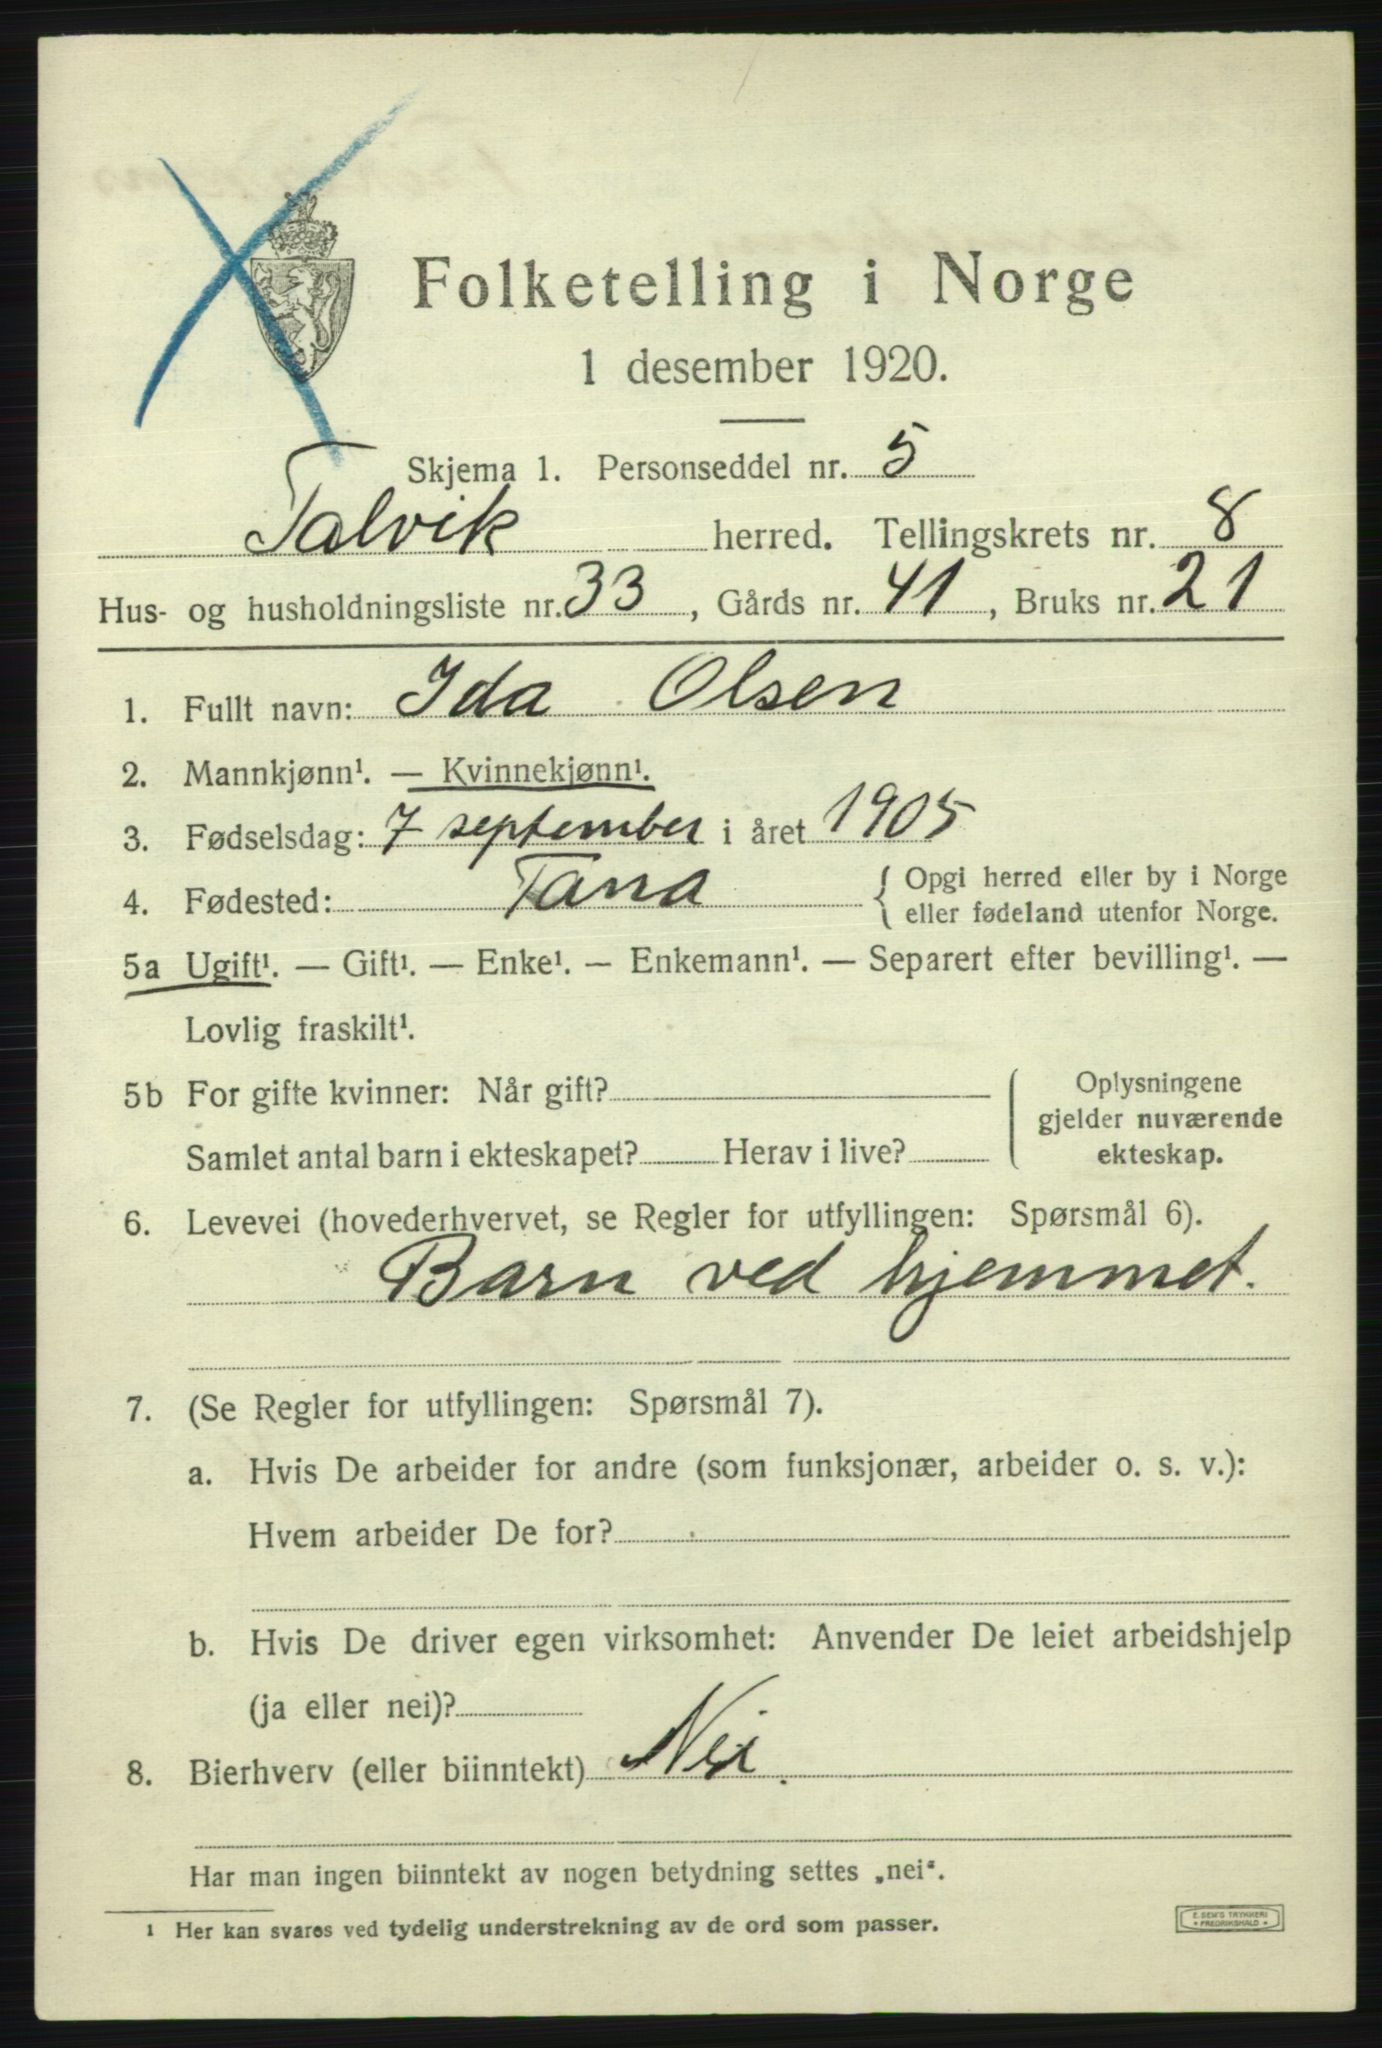 Folketelling i Norge
1 desember 1920.
Skjema 1. Personseddel nr. 5
Talvik herred. Tellingskrets nr. 8
Hus- og husholdningsliste nr. 33, Gårds nr. 41, Bruks nr. 21
1. Fullt navn: Ida Olsen
2. Mannkjønn¹. — Kvinnekjønn¹.
3. Fødselsdag: 7 september i året 1905
4. Fødested: Tana { Opgi herred eller by i Norge
eller fødeland utenfor Norge.
5a Ugift¹. — Gift¹. — Enke¹. — Enkemann¹. — Separert efter bevilling¹. —
Lovlig fraskilt¹.
5b For gifte kvinner: Når gift?
Samlet antal barn i ekteskapet? Herav i live?
Oplysningene
gjelder nuværende
ekteskap.
6. Levevei (hovederhvervet, se Regler for utfyllingen: Spørsmål 6).
Barn ved hjemmet.
7. (Se Regler for utfyllingen: Spørsmål 7).
a. Hvis De arbeider for andre (som funksjonær, arbeider o. s. v.):
Hvem arbeider De for?
b. Hvis De driver egen virksomhet: Anvender De leiet arbeidshjelp
(ja eller nei)?
8. Bierhverv (eller biinntekt) Nei.
Har man ingen biinntekt av nogen betydning settes „nei“.
¹ Her kan svares ved tydelig understrekning av de ord som passer.
E. SEM'S TRYKKERI
• FREDRIKSHALD •